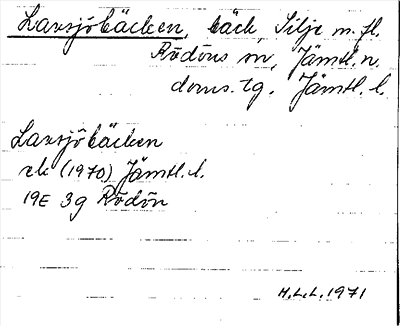 Larsjöbäcken, bäck, Silje m. fl.
Rödöns sn, Jämtl. n.
doms. tg. Jämtl. l.
Larsjöbäcken
rk (1970) Jämtl. l.
19E 3g Rödön
H.L.L. 1971